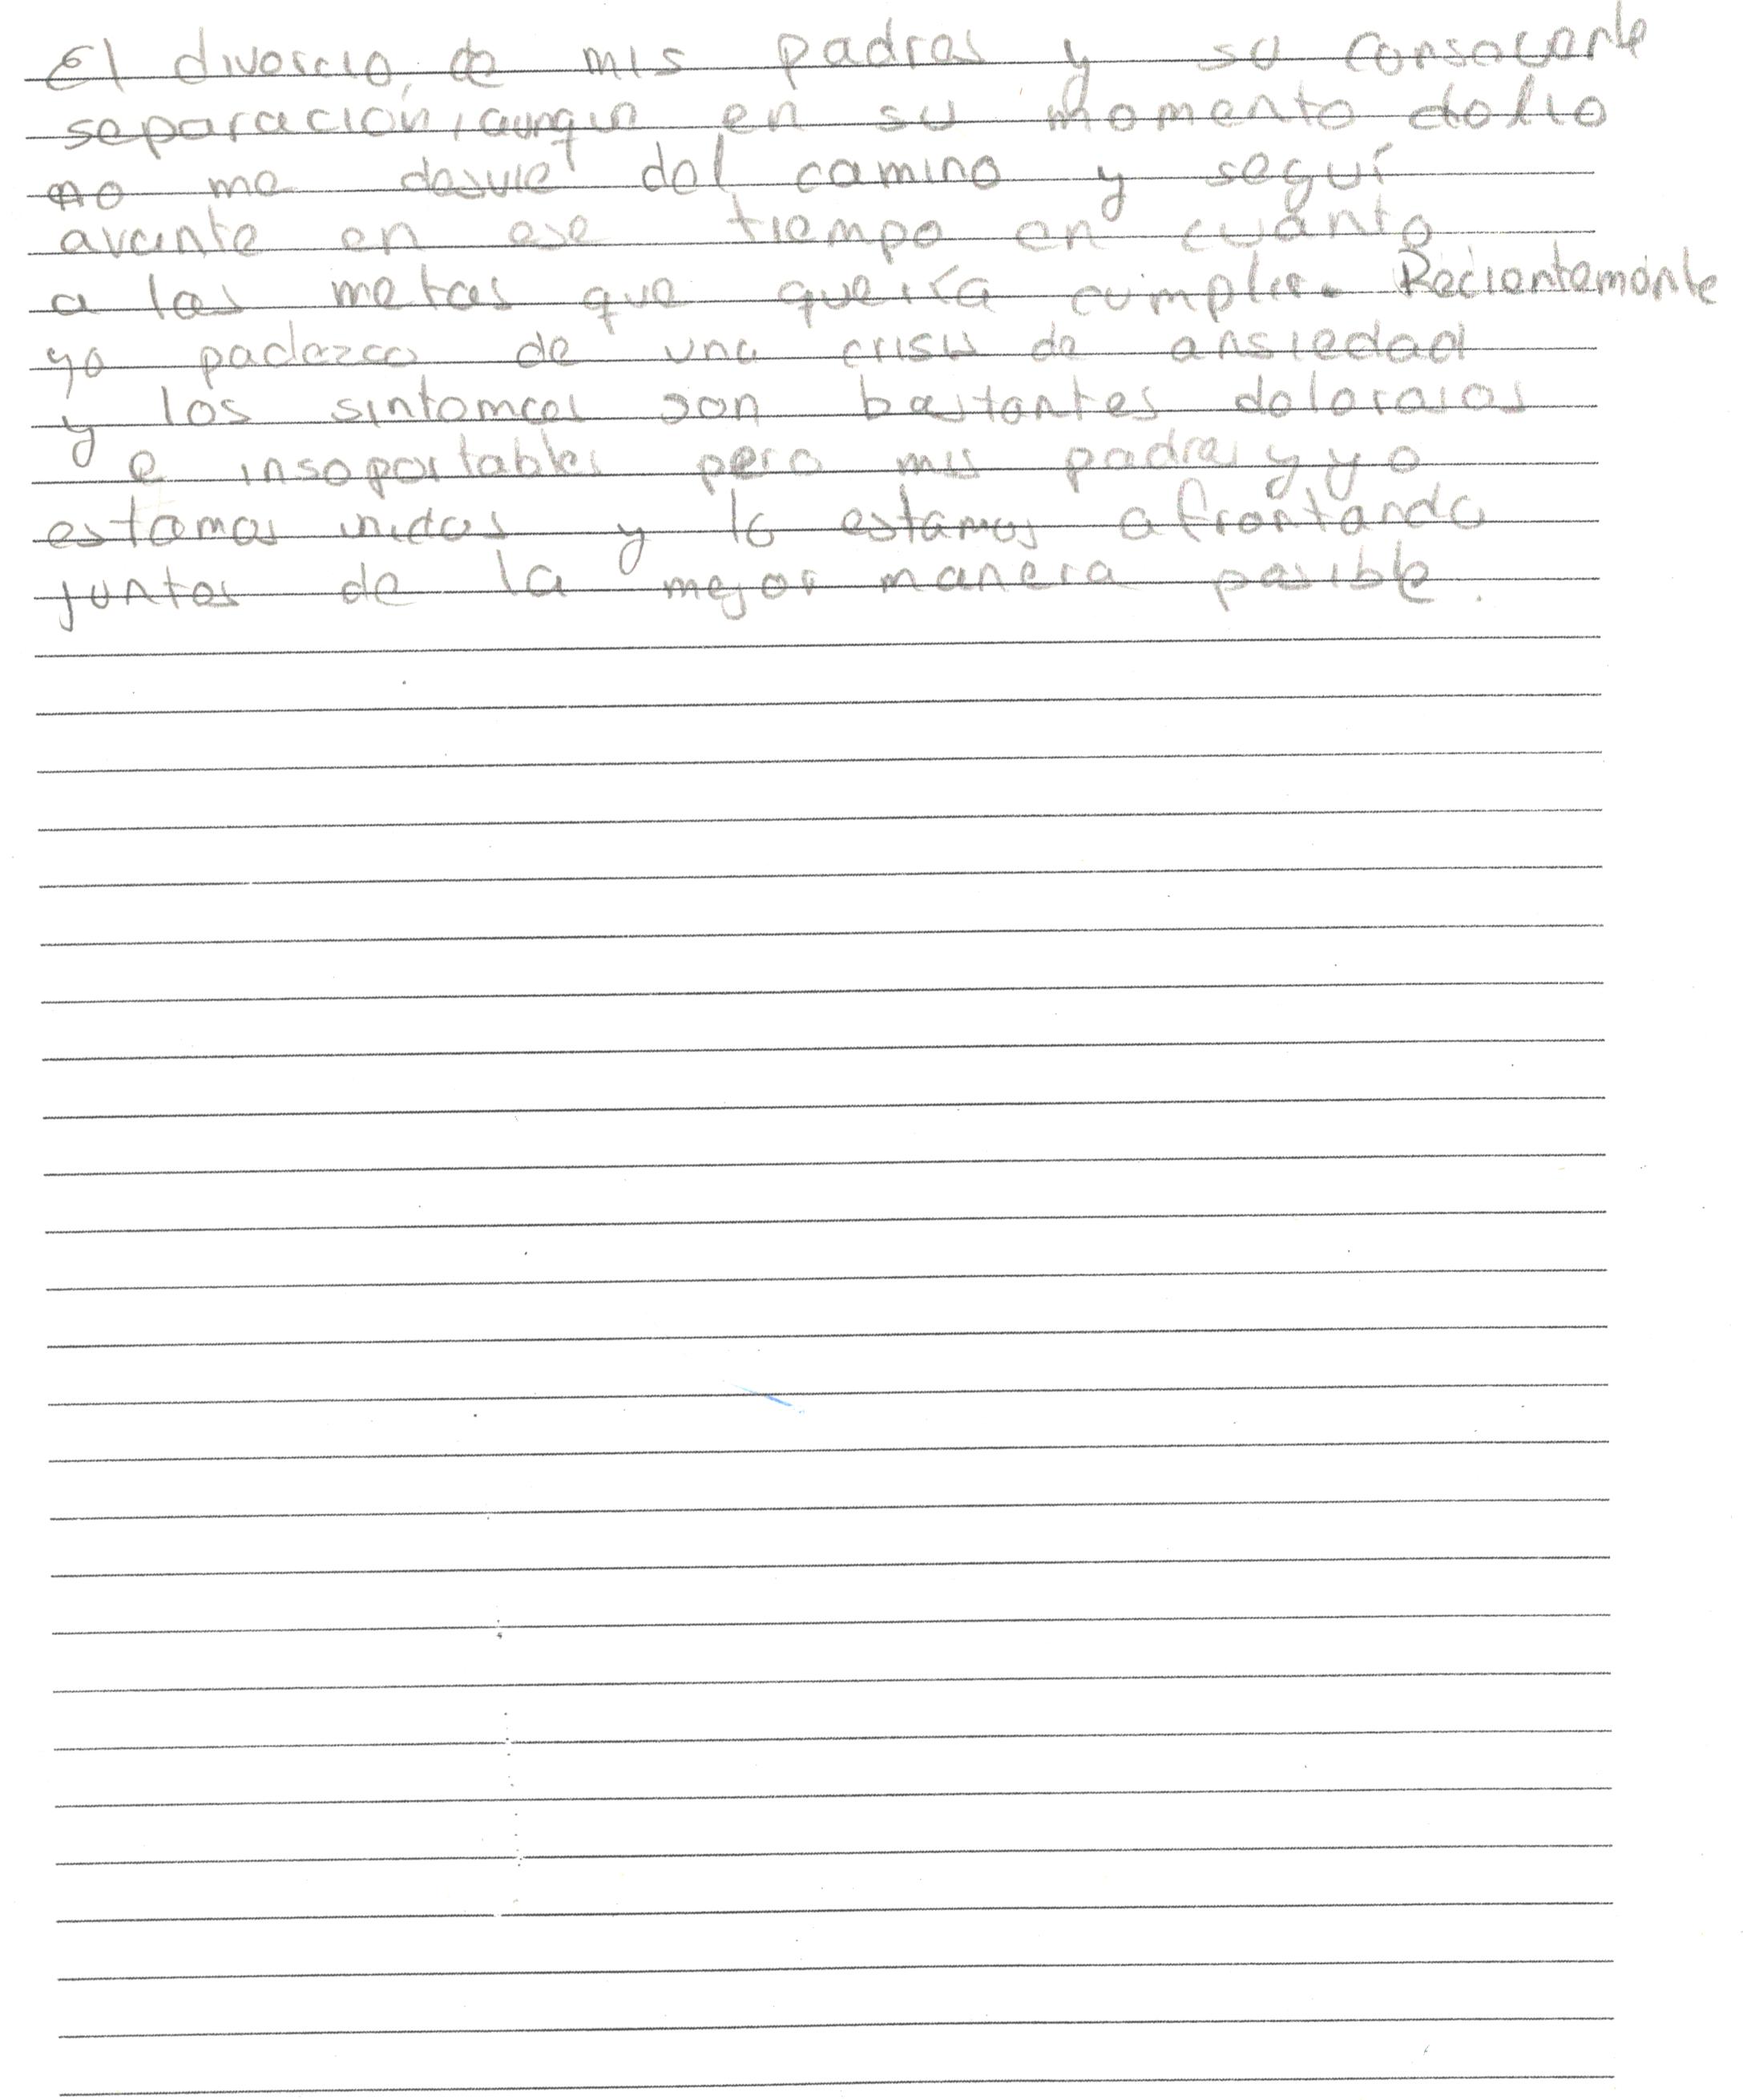 El divorcio, de mis padres y su consecuente
separación, aunque en su momento dolio
no me desvie del camino y seguí
avante en ese tiempo en cuanto
a las metas que quería cumplir. Recientemente
yo padezco de una crisis de ansiedad
y los sintomas son bastantes dolorosos
e insoportables pero mis padres y yo
estamos unidos y lo estamos afrontando
juntos de la mejor manera posible.